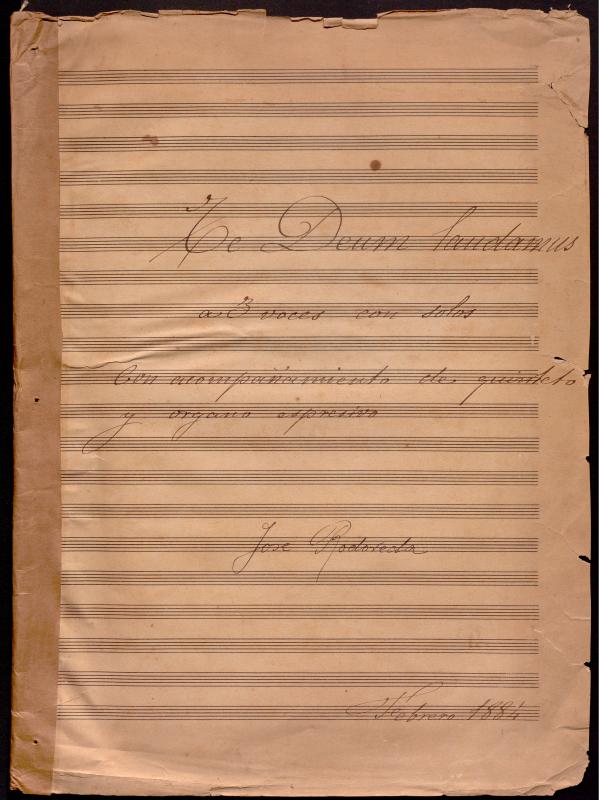 Te Deum laudamus
a 3 voces con solos
Con acompañamiento de quinteto
y organo espresivo
Jose Rodoreda
Febrero 1884